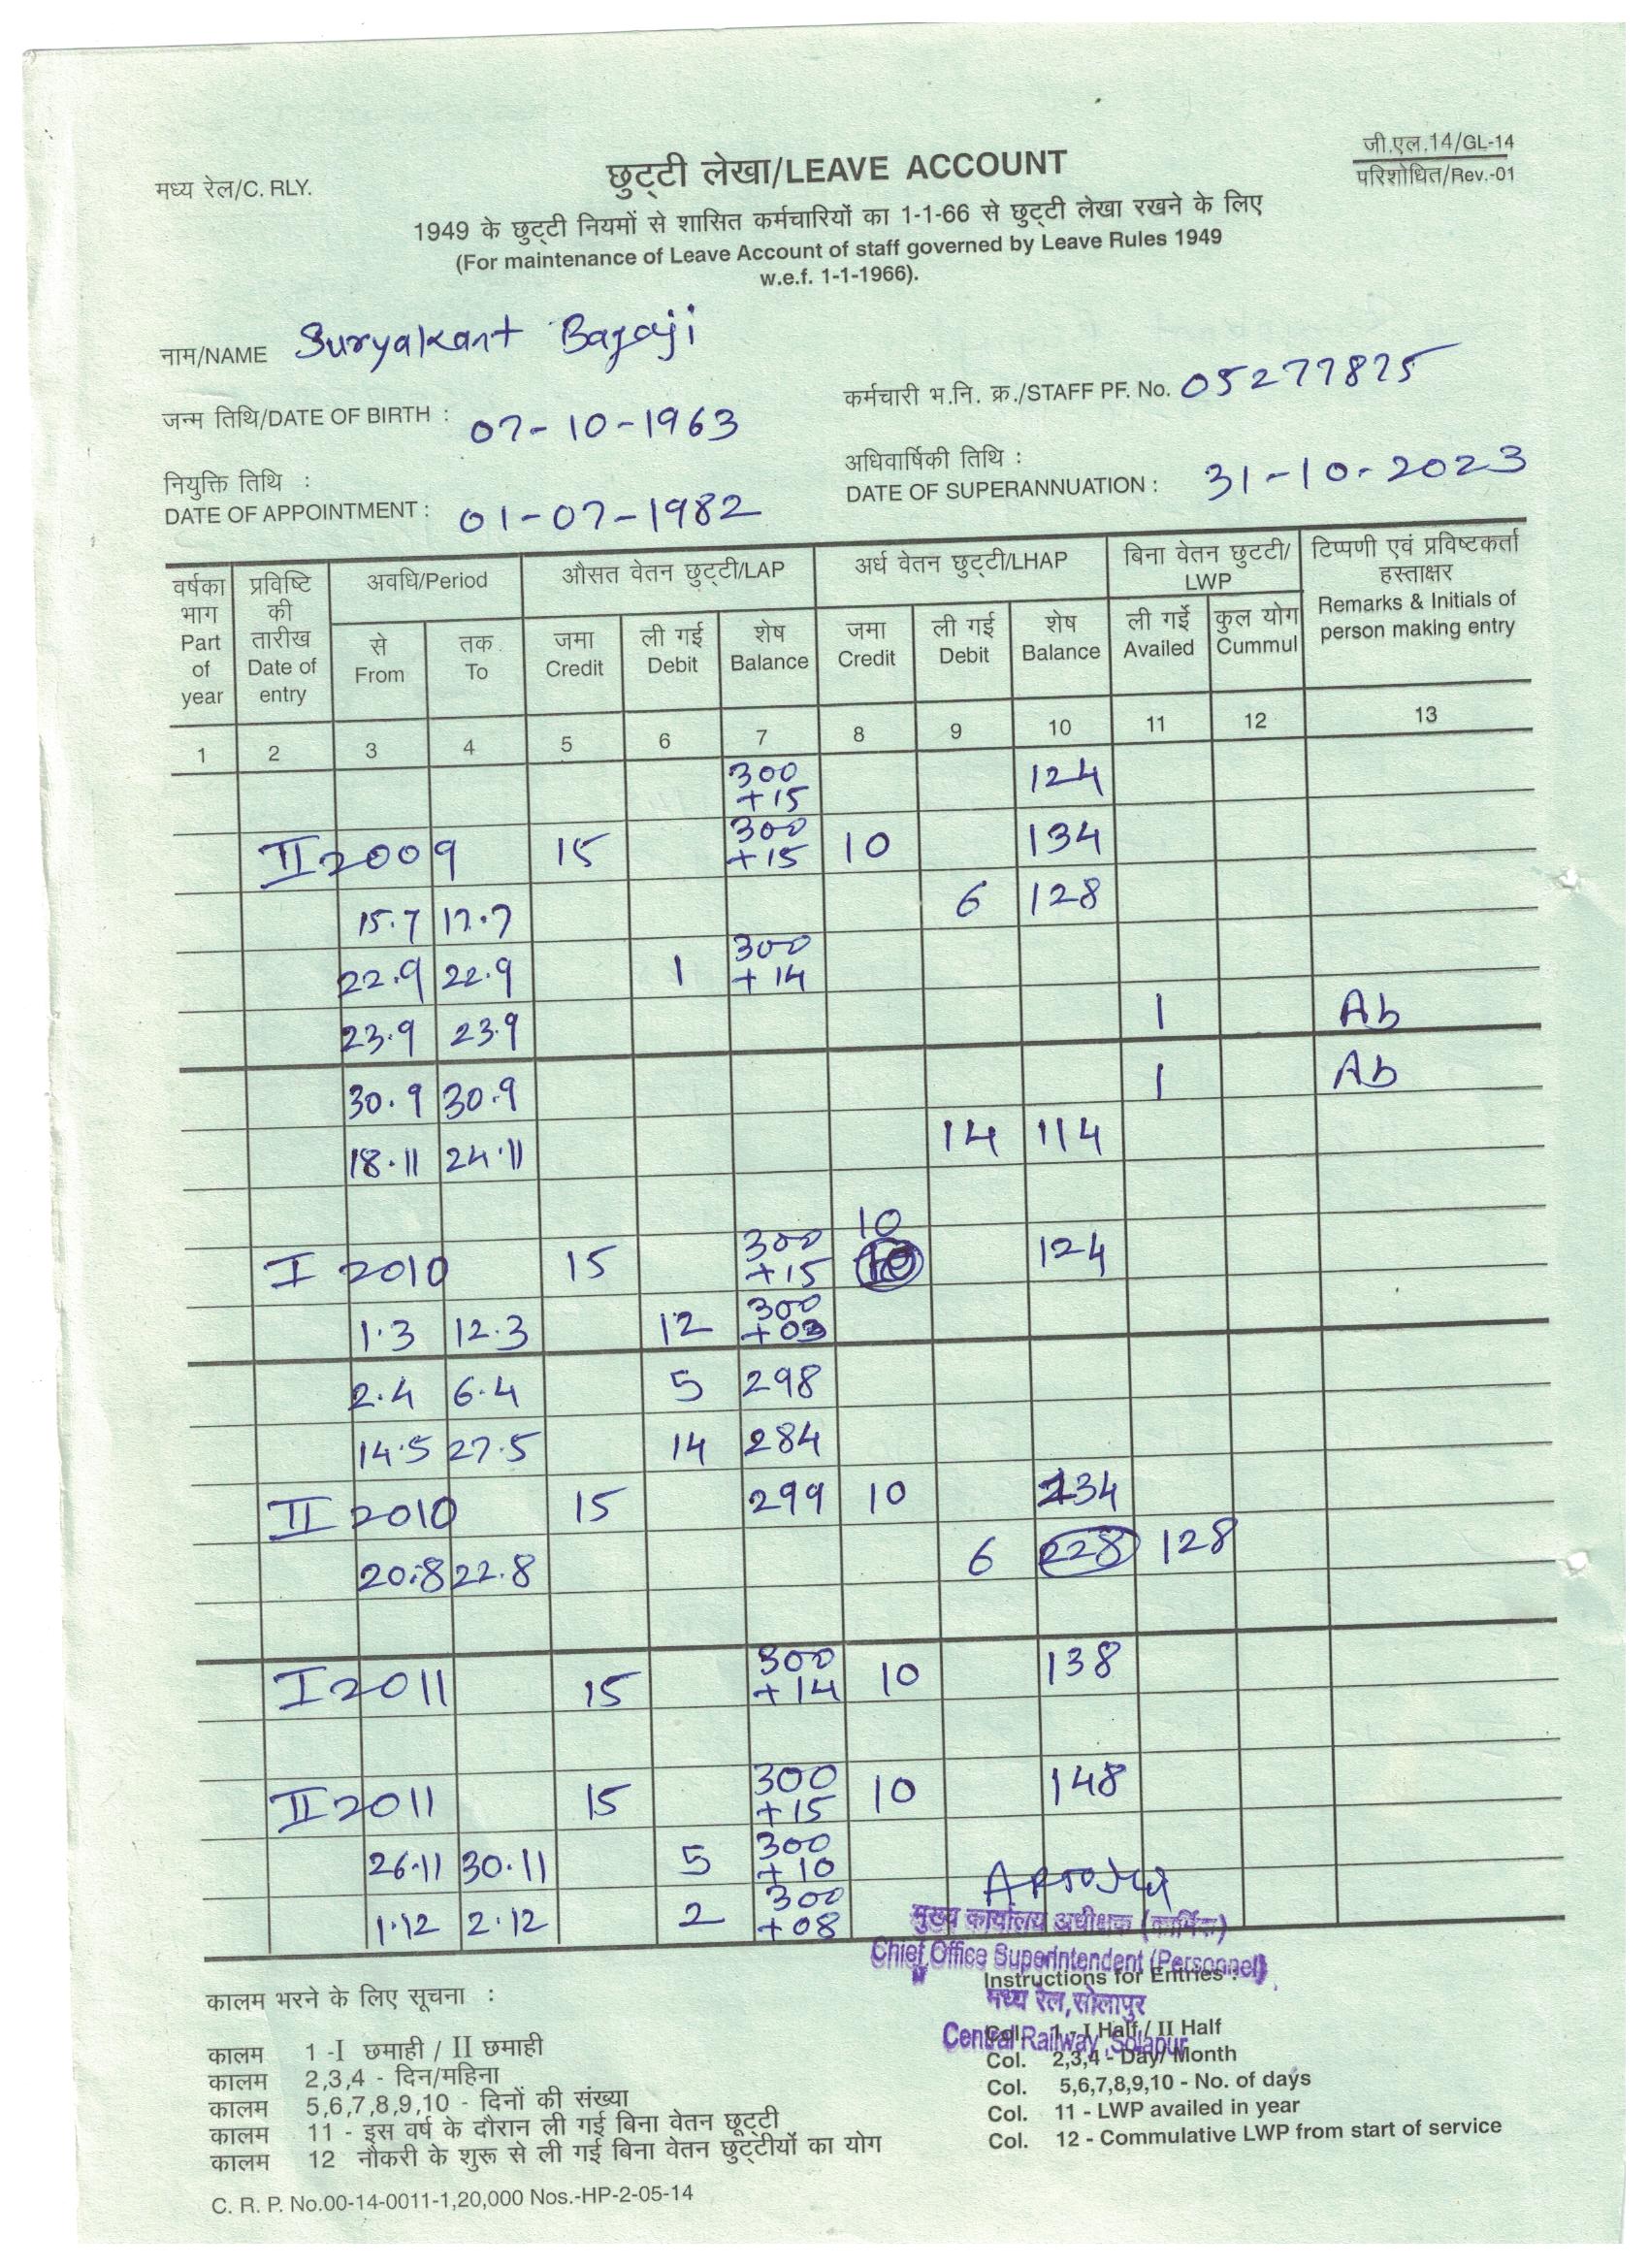 मध्य रेल/C. RLY.
छुट्टी लेखा/LEAVE ACCOUNT
जी.एल.14/GL-14
परिशोधित/Rev.-01
1949 के छुट्टी नियमों से शासित कर्मचारियों का 1-1-66 से छुट्टी लेखा रखने के लिए
(For maintenance of Leave Account of staff governed by Leave Rules 1949
w.e.f. 1-1-1966).
नाम/NAME Suryakant Bagaji
कर्मचारी भ.नि. क्र./STAFF PF. No. 05277875
जन्म तिथि/DATE OF BIRTH : 07-10-1963
नियुक्ति तिथि :
DATE OF APPOINTMENT : 01-07-1982
अधिवार्षिकी तिथि :
DATE OF SUPERANNUATION : 31-10-2023
वर्षका भाग Part of year
प्रविष्टि की तारीख Date of entry
अवधि/Period
से From
तक To
औसत वेतन छुट्टी/LAP
जमा Credit
ली गई Debit
शेष Balance
अर्ध वेतन छुट्टी/LHAP
जमा Credit
ली गई Debit
शेष Balance
बिना वेतन छुटटी/ LWP
ली गईे Availed
कुल योग Cummul
टिप्पणी एवं प्रविष्टकर्ता हस्ताक्षर
Remarks & Initials of person making entry
1 2 3 4 5 6 7 8 9 10 11 12 13
300 +15 124
II 2009 15 300 +15 10 134
15.7 17.7 6 128
22.9 22.9 1 300 +14
23.9 23.9 1 Ab
30.9 30.9 1 Ab
18.11 24.11 14 114
I 2010 15 300 +15 10 124
1.3 12.3 12 300 +03
2.4 6.4 5 298
14.5 27.5 14 284
II 2010 15 299 10 234
20.8 22.8 6 228 128
I 2011 15 300 +14 10 138
II 2011 15 300 +15 10 148
26.11 30.11 5 300 +10
1.12 2.12 2 300 +08
मुख्य कार्यालय अधीक्षक (कार्मिक)
Chief Office Superintendent (Personnel)
मध्य रेल, सोलापुर
Central Railway, Solapur
कालम भरने के लिए सूचना :
कालम 1 -I छमाही / II छमाही
कालम 2,3,4 - दिन/महिना
कालम 5,6,7,8,9,10 - दिनों की संख्या
कालम 11 - इस वर्ष के दौरान ली गई बिना वेतन छूट्टी
कालम 12 नौकरी के शुरू से ली गई बिना वेतन छुट्टीयों का योग
Instructions for Entries :
Col. 1 - I Half / II Half
Col. 2,3,4 - Day/ Month
Col. 5,6,7,8,9,10 - No. of days
Col. 11 - LWP availed in year
Col. 12 - Commulative LWP from start of service
C. R. P. No.00-14-0011-1,20,000 Nos.-HP-2-05-14